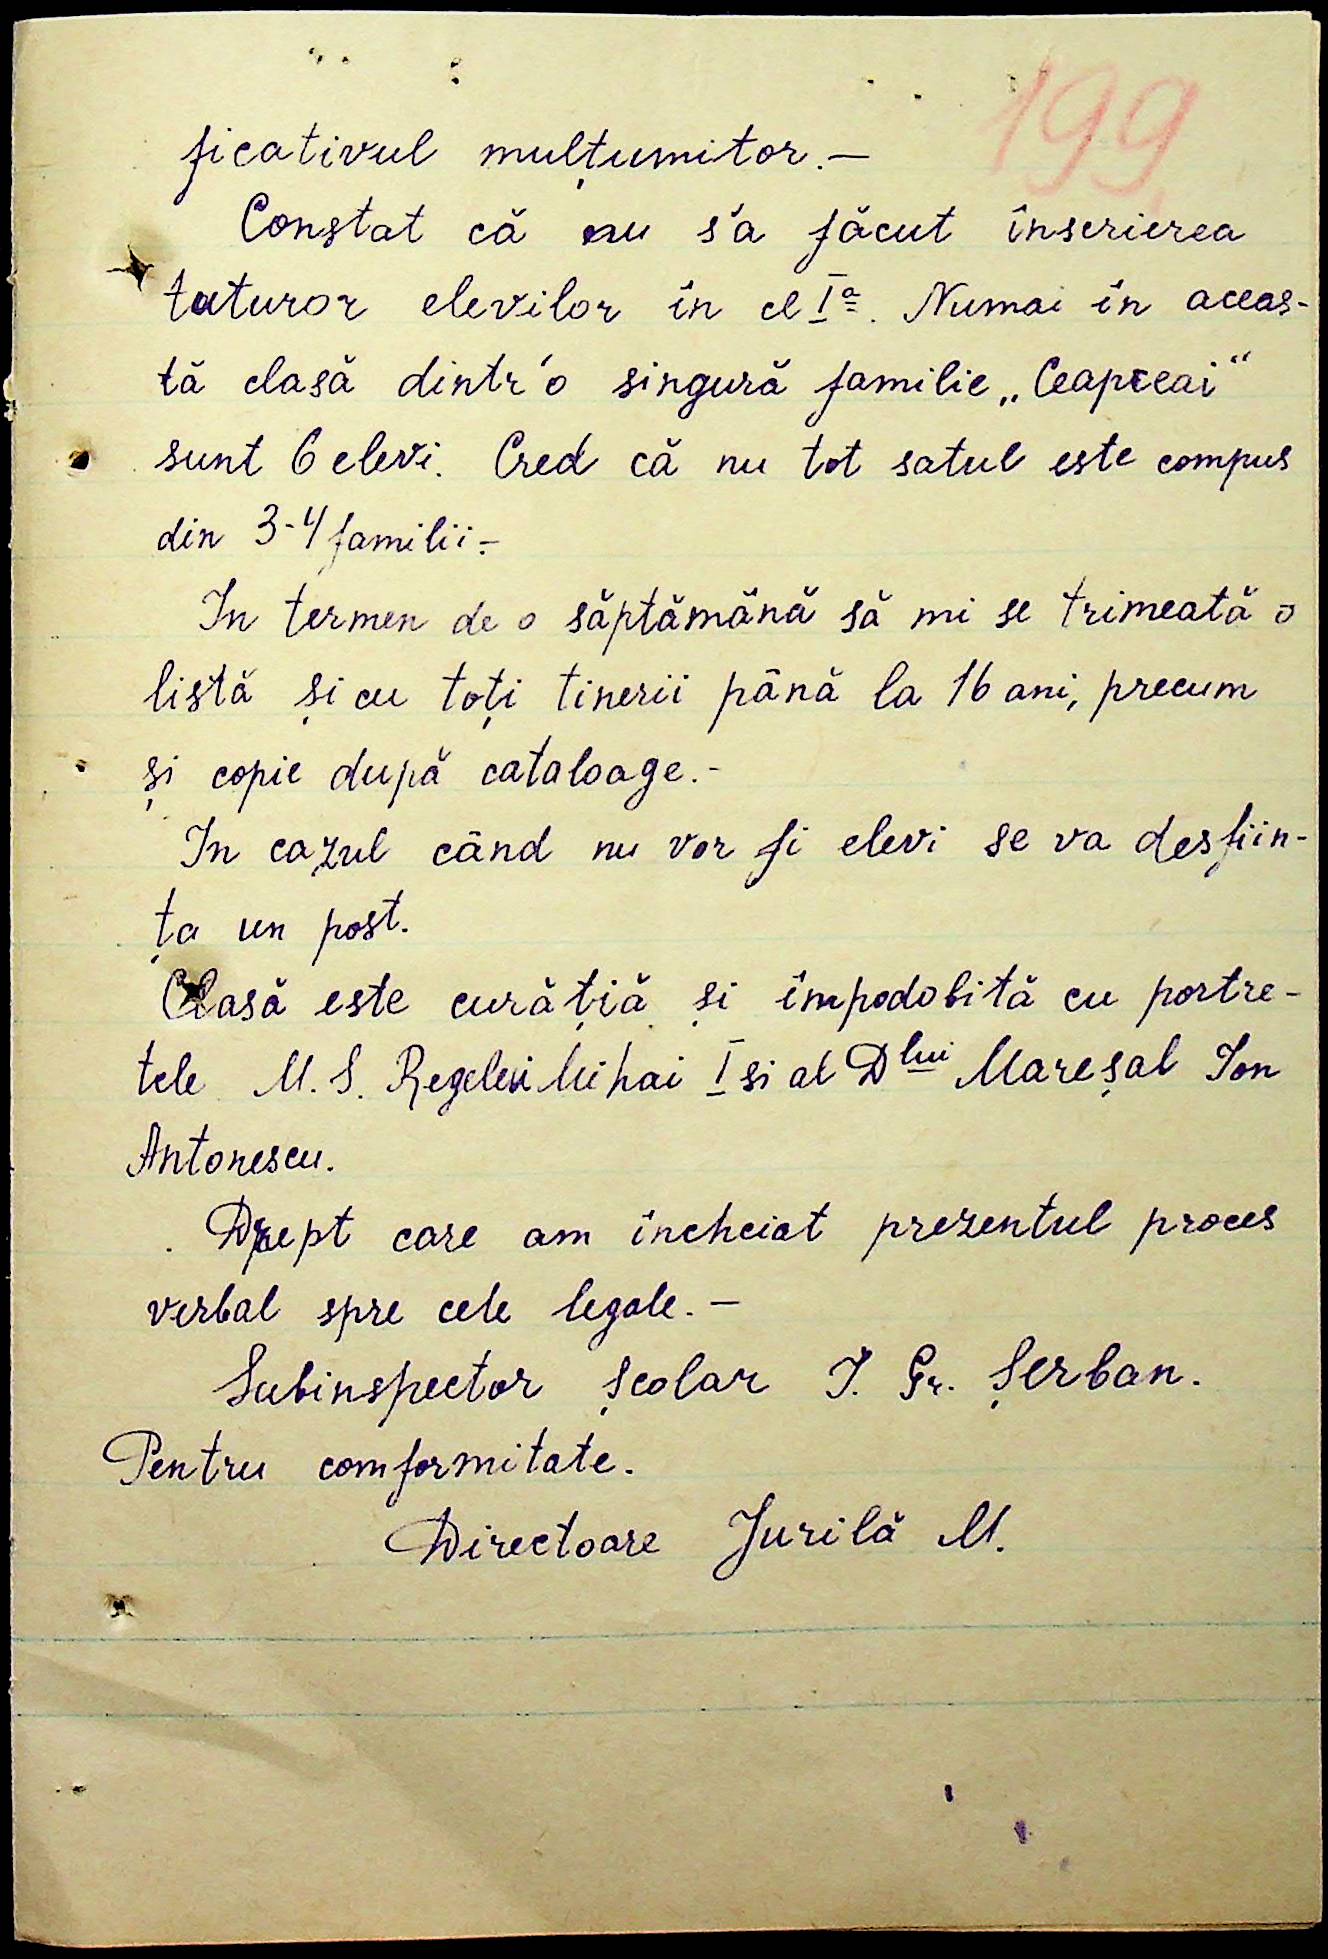 199
ficativul mulțumitor.—
Constat că nu s'a făcut înscrierea
tuturor elevilor în cl Iª. Numai în aceas-
tă clasă dintr'o singură familie „Ceapceai"
sunt 6 elevi. Cred că nu tot satul este compus
din 3-4 familii.-
In termen de o săptămână să mi se trimeată o
listă și cu toți tinerii până la 16 ani, precum
și copie după cataloage.-
In cazul când nu vor fi elevi se va desfiin-
ța un post.
Clasă este curățiă și împodobită cu portre-
tele M. S. Regelui Mihai I si al Dlui Mareșal Ion
Antonescu.
Drept care am încheiat prezentul proces
verbal spre cele legale.—
Subinspector școlar I. Gr. Șerban.
Pentru comformitate.
Directoare Jurilă M.